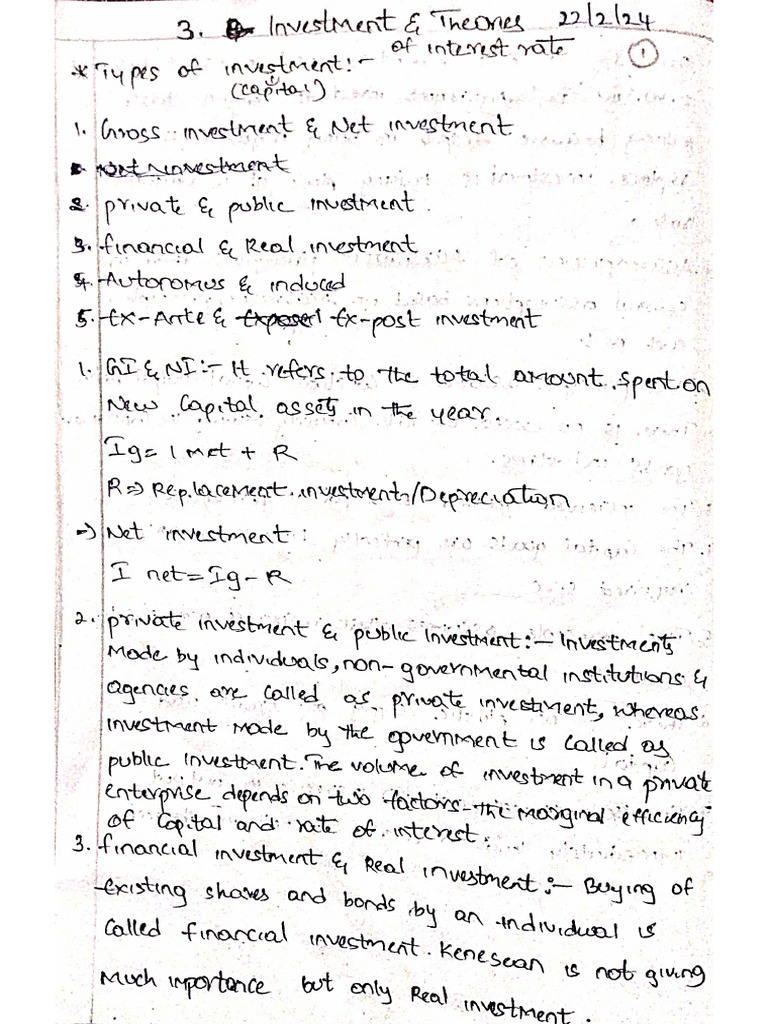 3. Investment & Theories 22/2/24
of interest rate
1
* Types of investment:-
(capital)
1. Gross investment & Net investment
Net investment
2. private & public investment.
3. financial & Real investment
4. Autonomus & induced
5. Ex-Ante & Ex-post investment
1. GI & NI :- It refers to the total amount spent on
New Capital assets in the year.
Ig = I net + R
R => Replacement investment/Depreciation
=> Net investment:
I net = Ig - R
2. private investment & public investment:- Investments
Made by individuals, non-governmental institutions &
agencies are called as private investment, whereas
investment Made by the government is called as
public investment. The volume of investment in a private
enterprise depends on two factors - the marginal efficiency
of capital and rate of interest.
3. financial investment & Real investment:- Buying of
existing shares and bonds by an individual is
called financial investment. Kenesean is not giving
Much importance but only Real investment.